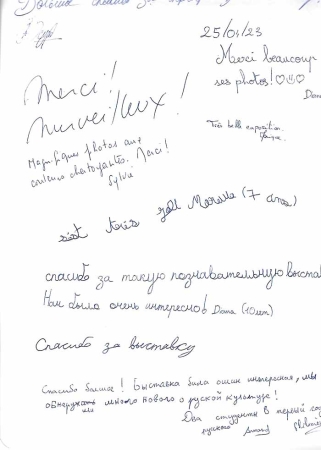 25/04/23
Merci beaucoup
ses photos!
Merci!
Merveilleux!
Très belle exposition.
Magnifiques photos aux
couleurs chatoyantes. Merci!
Sylvie
c'est très joli (7 ans)
спасибо за такую познавательную выстав
Нам было очень интересно! Dana (10 лет)
Спасибо за выставку
Спасибо большое! Выставка била очин интересная, мы
обнаружили много нового о руской культуре!
Два студенты в первый год
русского